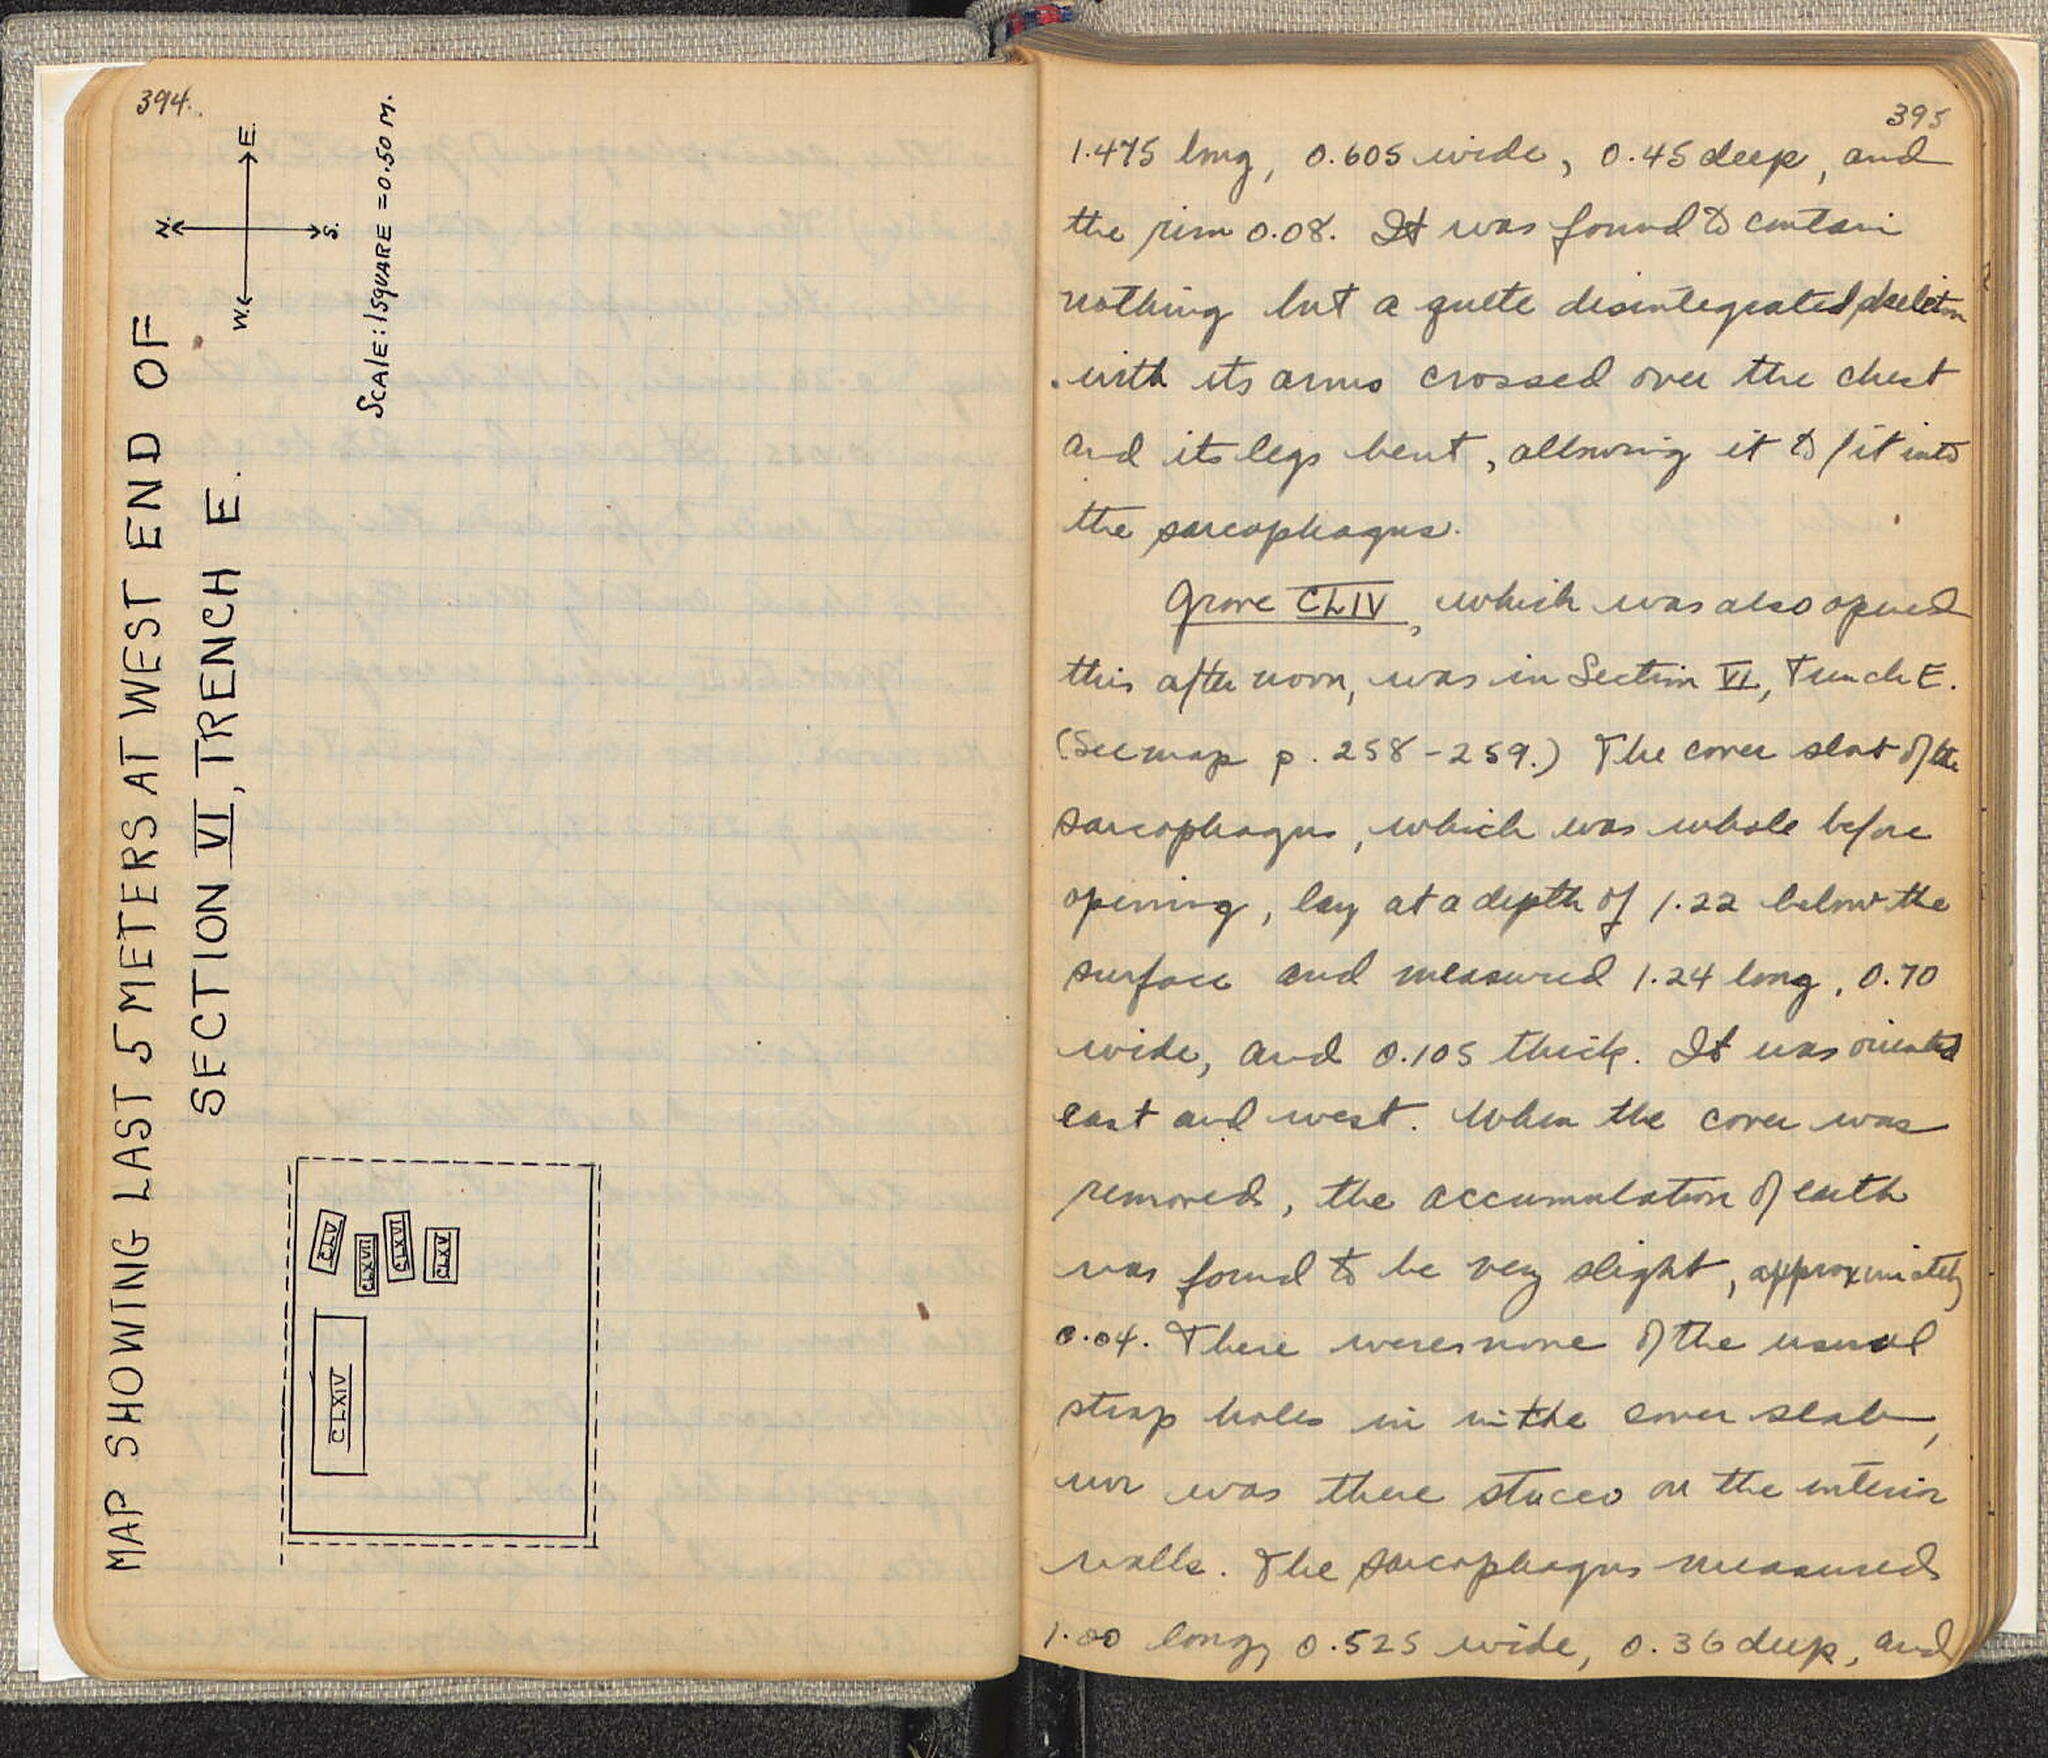 394.
MAP SHOWING LAST 5 METERS AT WEST END OF
SECTION VI, TRENCH E.
N.
E.
S.
W.
SCALE: 1 SQUARE = 0.50 M.
CLV
CLXVII
CLXVI
CLXV
CLXIV
395
1.475 long, 0.605 wide, 0.45 deep, and
the rim 0.08. It was found to contain
nothing but a quite disintegrated skeleton
with its arms crossed over the chest
and its legs bent, allowing it to fit into
the sarcophagus.
Grave CLIV, which was also opened
this afternoon, was in Section VI, Trench E.
(See map p. 258-259.) The cover slab of the
sarcophagus, which was whole before
opening, lay at a depth of 1.22 below the
surface and measured 1.24 long, 0.70
wide, and 0.105 thick. It was oriented
east and west. When the cover was
removed, the accumulation of earth
was found to be very slight, approximately
0.04. There were none of the usual
strap holes in in the cover slab,
nor was there stucco on the interior
walls. The sarcophagus measured
1.00 long, 0.525 wide, 0.36 deep, and